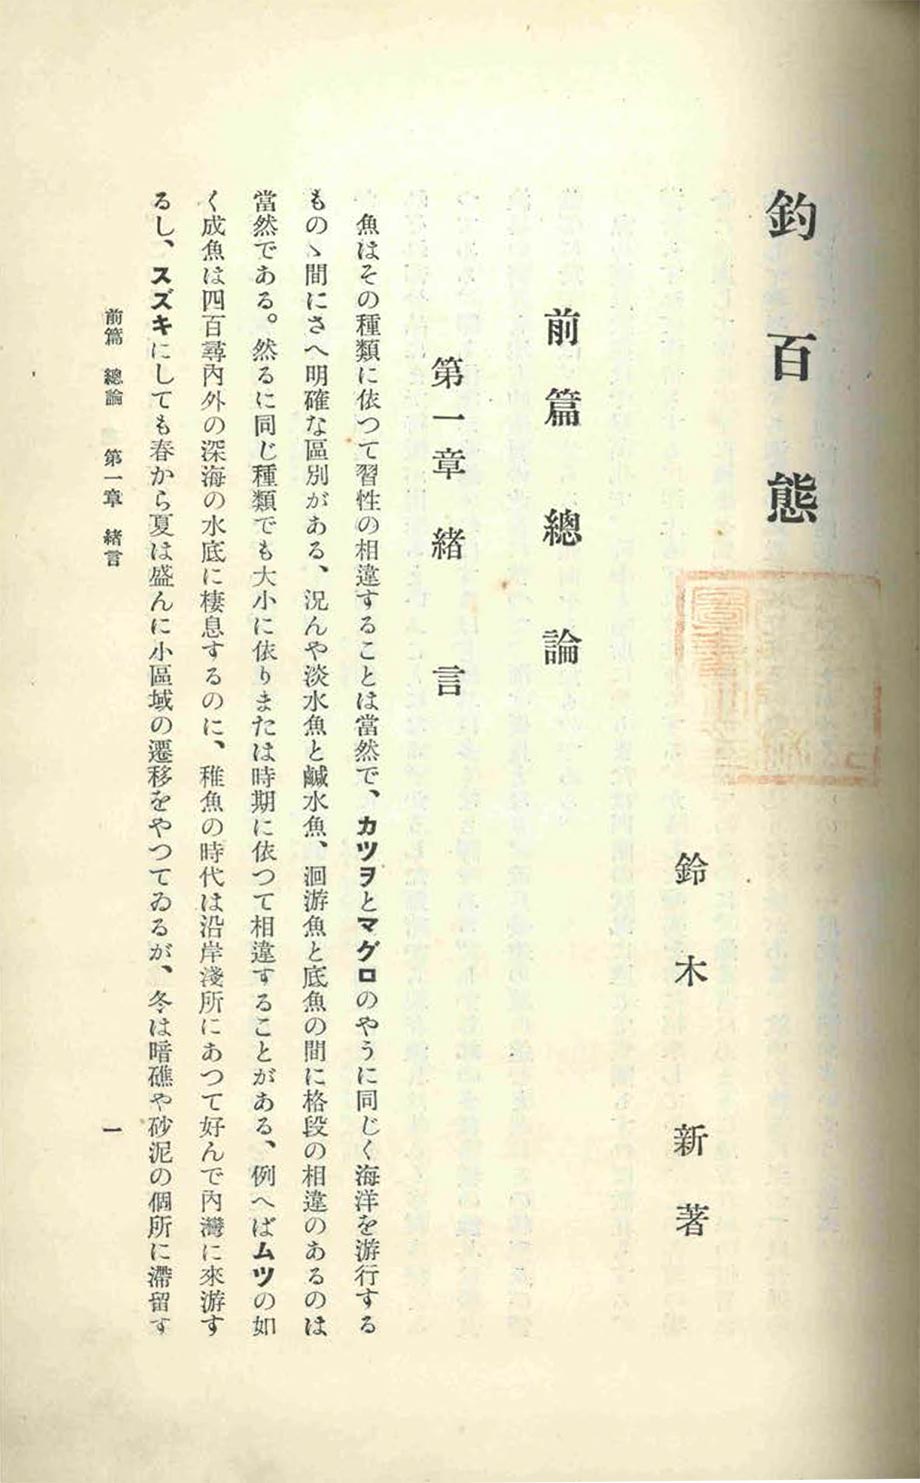 釣百態
鈴木新著
前篇 總論
第一章 緒言
魚はその種類に依つて習性の相違することは當然で、カツヲとマグロのやうに同じく海洋を游行する
ものゝ間にさへ明確な區別がある、況んや淡水魚と鹹水魚、洄游魚と底魚の間に格段の相違のあるのは
當然である。然るに同じ種類でも大小に依りまたは時期に依つて相違することがある、例へばムツの如
く成魚は四百尋內外の深海の水底に棲息するのに、稚魚の時代は沿岸淺所にあつて好んで內灣に來游す
るし、スズキにしても春から夏は盛んに小區域の遷移をやつてゐるが、冬は暗礁や砂泥の個所に滯留す
前篇 總論 第一章 緒言
一